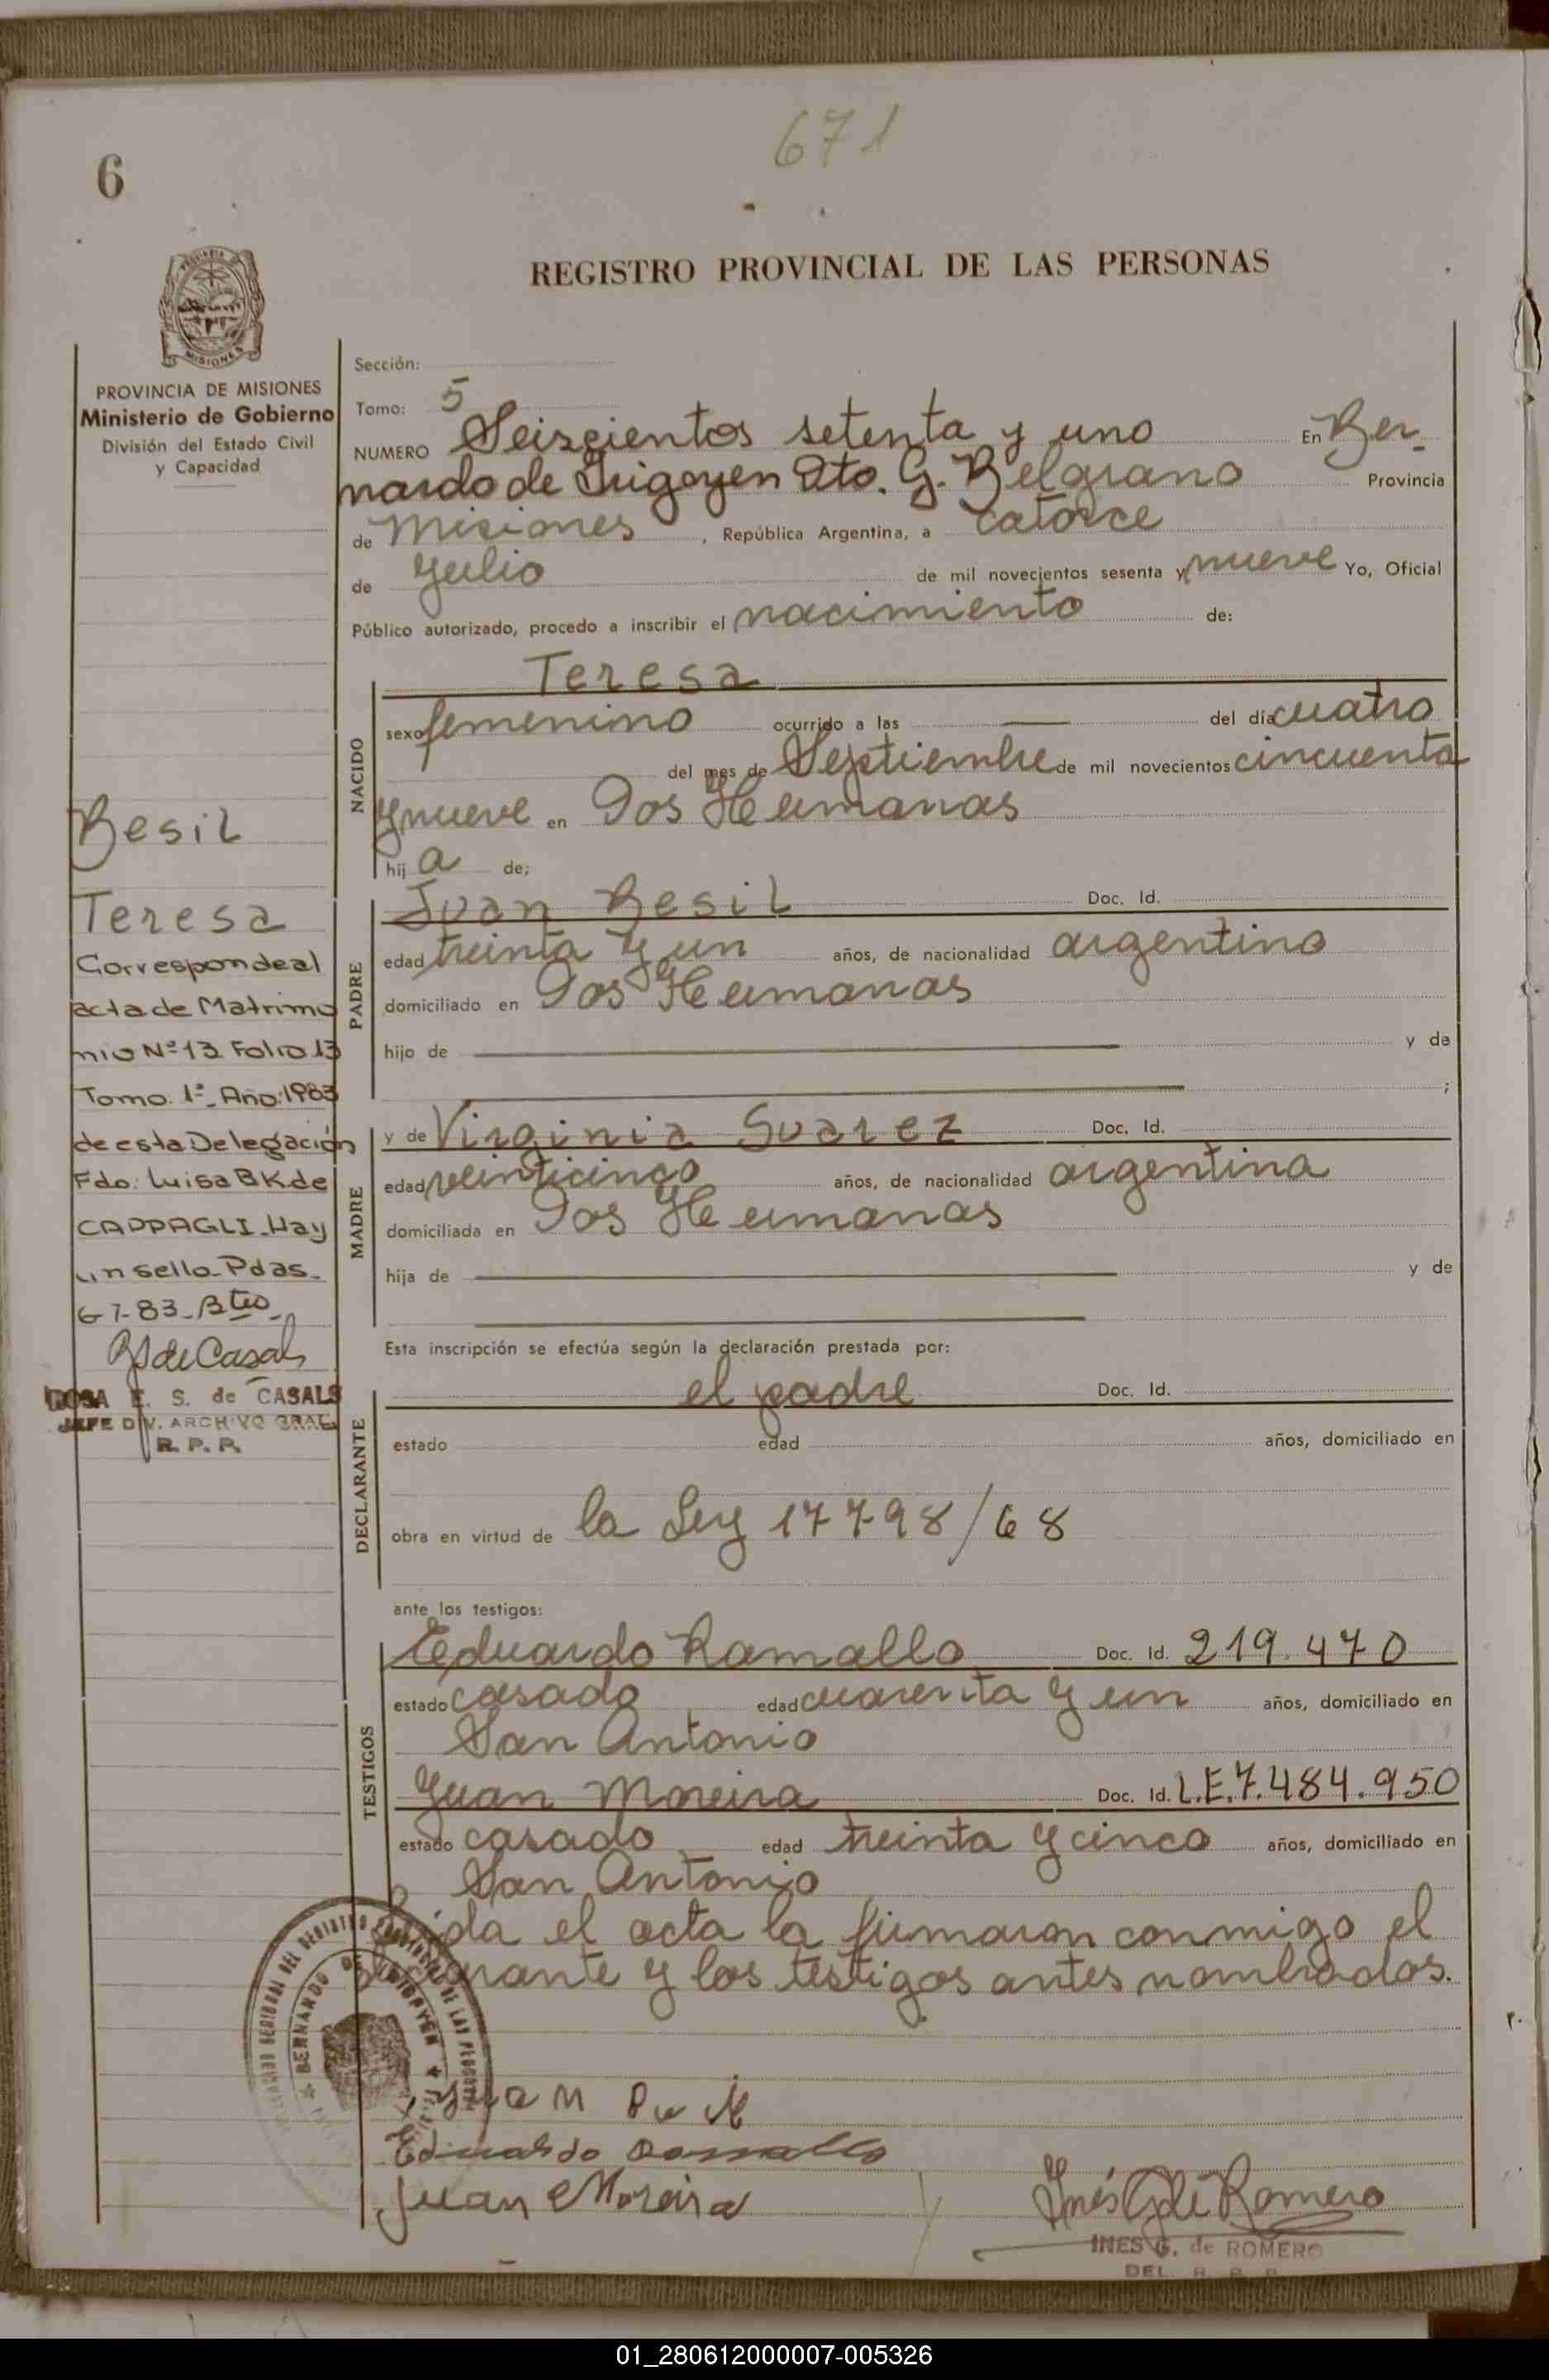 671
6
REGISTRO PROVINCIAL DE LAS PERSONAS
PROVINCIA DE MISIONES
MISIONES
PROVINCIA DE MISIONES
Ministerio de Gobierno
División del Estado Civil
y Capacidad
Sección:
Tomo: 5
NUMERO Seiscientos setenta y uno En Ber-
nardo de Irigoyen Dto. G. Belgrano Provincia
de Misiones, República Argentina, a catorce
de Julio de mil novecientos sesenta y nueve Yo, Oficial
Público autorizado, procedo a inscribir el nacimiento de:
NACIDO
Teresa
sexo femenino ocurrido a las — del día cuatro
del mes de Septiembre de mil novecientos cincuenta
y nueve en Dos Hermanas
hij a de;
PADRE
Juan Besil Doc. Id.
edad treinta y un años, de nacionalidad argentino
domiciliado en Dos Hermanas
hijo de — y de
— ;
MADRE
y de Virginia Suarez Doc. Id.
edad veinticinco años, de nacionalidad argentina
domiciliada en Dos Hermanas
hija de — y de
—
Esta inscripción se efectúa según la declaración prestada por:
DECLARANTE
el padre Doc. Id.
estado edad años, domiciliado en
obra en virtud de la Ley 17798/68
ante los testigos:
TESTIGOS
Eduardo Ramallo Doc. Id. 219.470
estado casado edad cuarenta y un años, domiciliado en
San Antonio
Juan Moreira Doc. Id. L.E.7.484.950
estado casado edad treinta y cinco años, domiciliado en
San Antonio
Leida el acta la firmaron conmigo el
declarante y los testigos antes nombrados.
Besil
Teresa
Corresponde al
acta de Matrimo
nio Nº 13 Folio 13
Tomo 1º- Año: 1983
de esta Delegación
Fdo: Luisa B K de
CAPPAGLI- Hay
un sello- Pdas-
6-7-83-
RS de Casals
ROSA E. S. de CASALS
JEFE DIV. ARCHIVO GRAL.
R. P. P.
DELEGACION REGIONAL DEL REGISTRO PROVINCIAL DE LAS PERSONAS
BERNARDO DE IRIGOYEN
Juan
Eduardo Ramallo
Juan Moreira
Inés G de Romero
INES G. de ROMERO
DEL. R. P. P.
01_280612000007-005326